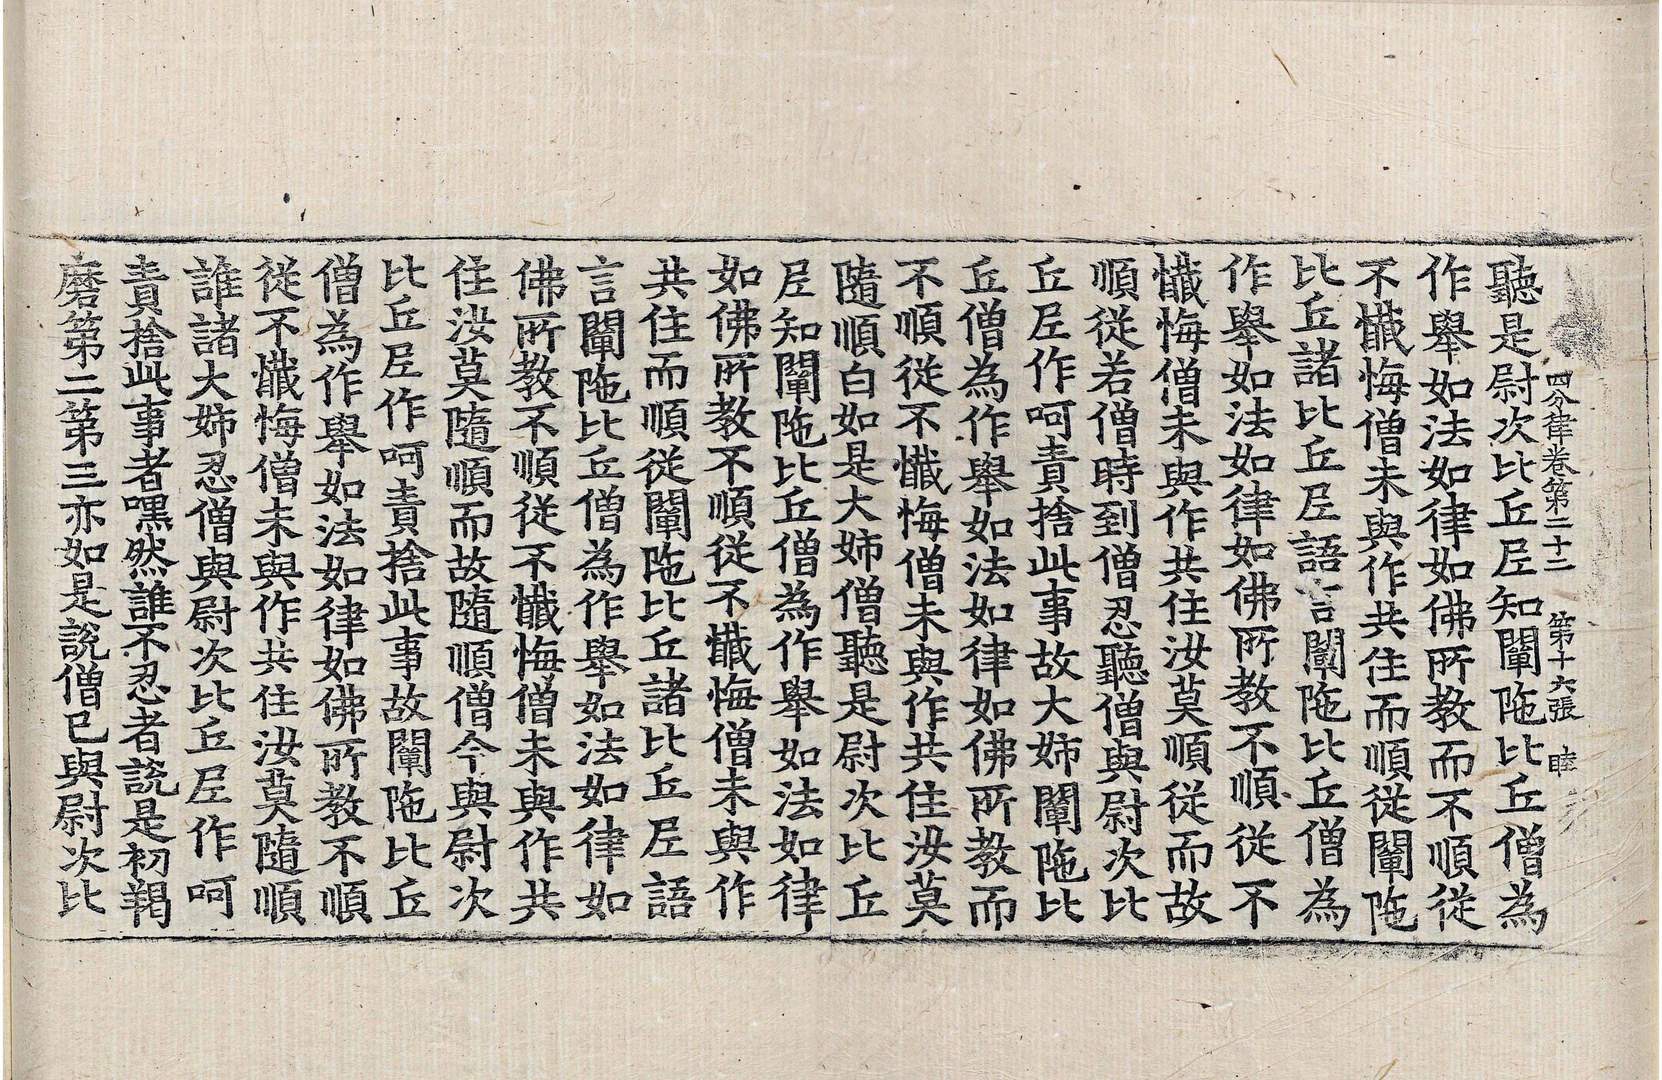 四分律卷第二十二 第十六張 睦
聽是尉次比丘尼知闡陁比丘僧為
作舉如法如律如佛所教而不順從
不懺悔僧未與作共住而順從闡陁
比丘諸比丘尼語言闡陁比丘僧為
作舉如法如律如佛所教不順從不
懺悔僧未與作共住汝莫順從而故
順從若僧時到僧忍聽僧與尉次比
丘尼作呵責捨此事故大姊闡陁比
丘僧為作舉如法如律如佛所教而
不順從不懺悔僧未與作共住汝莫
隨順白如是大姊僧聽是尉次比丘
尼知闡陁比丘僧為作舉如法如律
如佛所教不順從不懺悔僧未與作
共住而順從闡陁比丘諸比丘尼語
言闡陁比丘僧為作舉如法如律如
佛所教不順從不懺悔僧未與作共
住汝莫隨順而故隨順僧今與尉次
比丘尼作呵責捨此事故闡陁比丘
僧為作舉如法如律如佛所教不順
從不懺悔僧未與作共住汝莫隨順
誰諸大姊忍僧與尉次比丘尼作呵
責捨此事者嘿然誰不忍者說是初羯
磨第二第三亦如是說僧已與尉次比